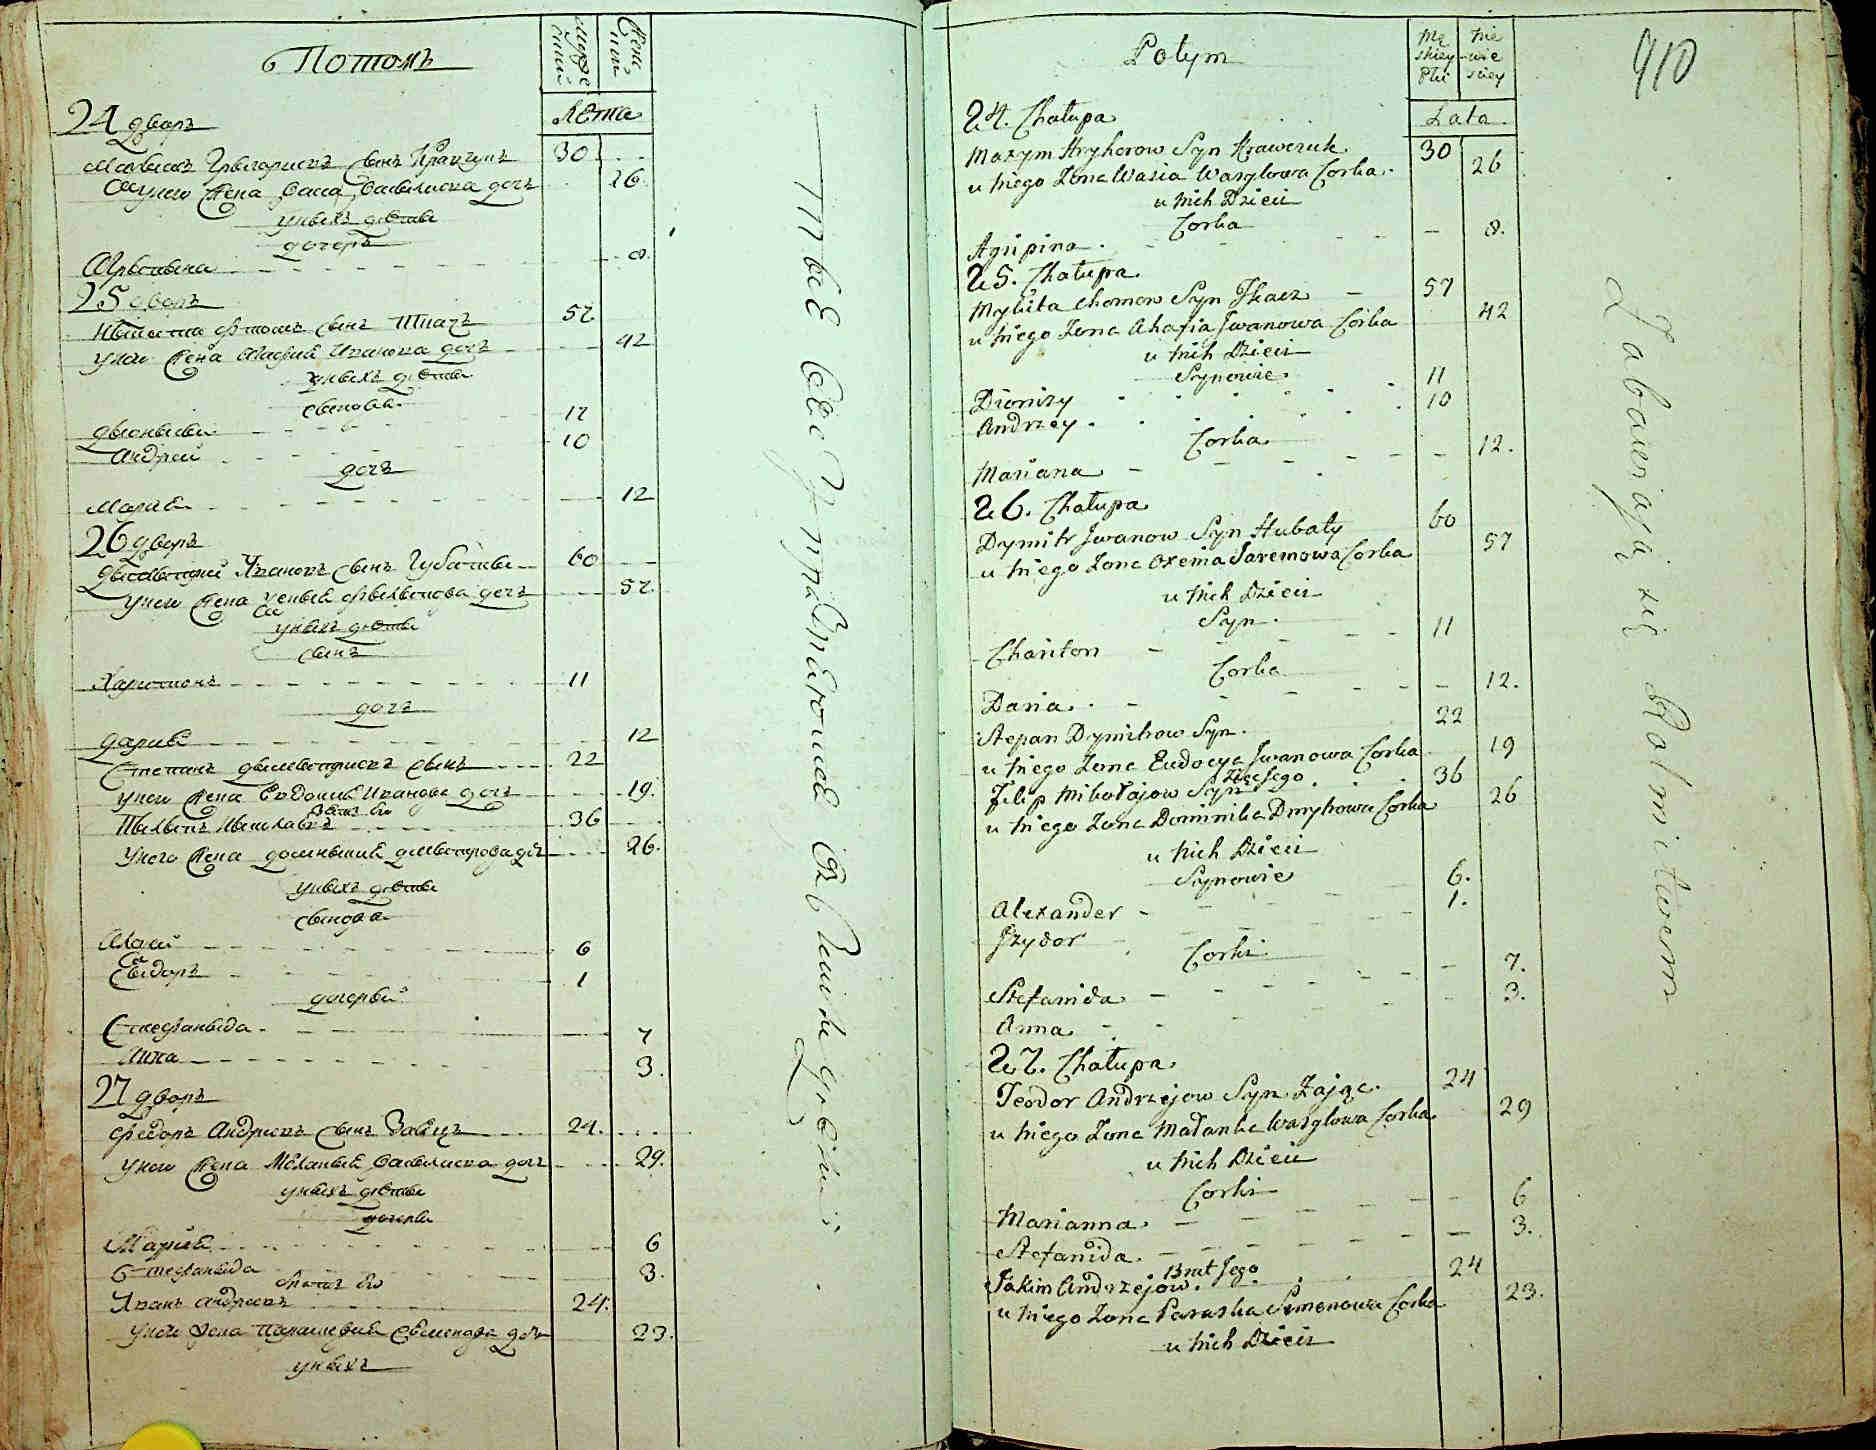 Потомъ
мужескои
женскои
Лѣта
24 дворъ
Максимъ Григориевъ сынъ Кравчукъ 30
у него жена Васса Васильева дочъ 26
у нихъ дѣти
дочеръ
Агрипина 8
25 дворъ
Никита Фтомъ сынъ Ткачъ 57
у него жена Агафия Иванова дочъ 42
у нихъ дѣти
сынови
Дионисии 11
Андреи 10
дочъ
Мария 12
26 дворъ
Димитрии Ивановъ сынъ Губатыи 60
у него жена 57
у нихъ дѣти
сынъ
Харитонъ 11
дочъ
Дария 12
Степанъ Димитриевъ сынъ 22
у него жена Евдокия Иванова дочъ 19.
зять его
36
у него жена Доминикия Димитрова дочъ 26.
у нихъ дѣти
сынова
6
Сидоръ 1
дочери
Стефанида 7
Анна 3.
27 дворъ
Федоръ Андреевъ сынъ Заяцъ 24.
у него жена Мелания Васильева дочъ 29.
у нихъ дѣти
дочери
Мария 6
Стефанида 3.
братъ его
Иванъ Андреевъ 24.
у него жена Параскевия Семенова дочъ 23.
у нихъ
Potym
Męskiey Płci
Niewieściey
Lata
910
24. Chałupa
Maxym Hryhorow Syn Krawczuk 30
u niego Zona Wasia Wasylowa Corka 26
u nich Dzieci
Corka
Agripina 8.
25. Chałupa
Mykita Chomow Syn Tkacz 57
u niego Zona Ahafia Jwanowa Corka 42
u nich Dzieci
Synowie
Dionizy 11
Andrzey 10
Corka
Mariana 12.
26. Chałupa
Dymitr Jwanow Syn Hubaty 60
u niego Zona Oxenia Jaremowa Corka 57
u nich Dzieci
Syn
Chariton 11
Corka
Daria 12.
Stepan Dymitrow Syn 22
u niego Zona Eudocya Jwanowa Corka 19
Zięć Jego
Filip Mikołajow Syn 36
u niego Zona Dominika Dmytrowa Corka 26
u nich Dzieci
Synowie
Alexander 6.
Jzydor 1.
Corki
Stefanida 7.
Anna 3.
27. Chałupa
Teodor Andrzejow Syn Zając 24
u niego Zona Małanka Wasylowa Corka 29
u nich Dzieci
Corki
Marianna 6
Stefanida 3.
Brat Jego
Jakim Andrzejow 24
u niego Zona Paraska Semenowa Corka 23.
u nich Dzieci
Zabawiają się Rolnictwem